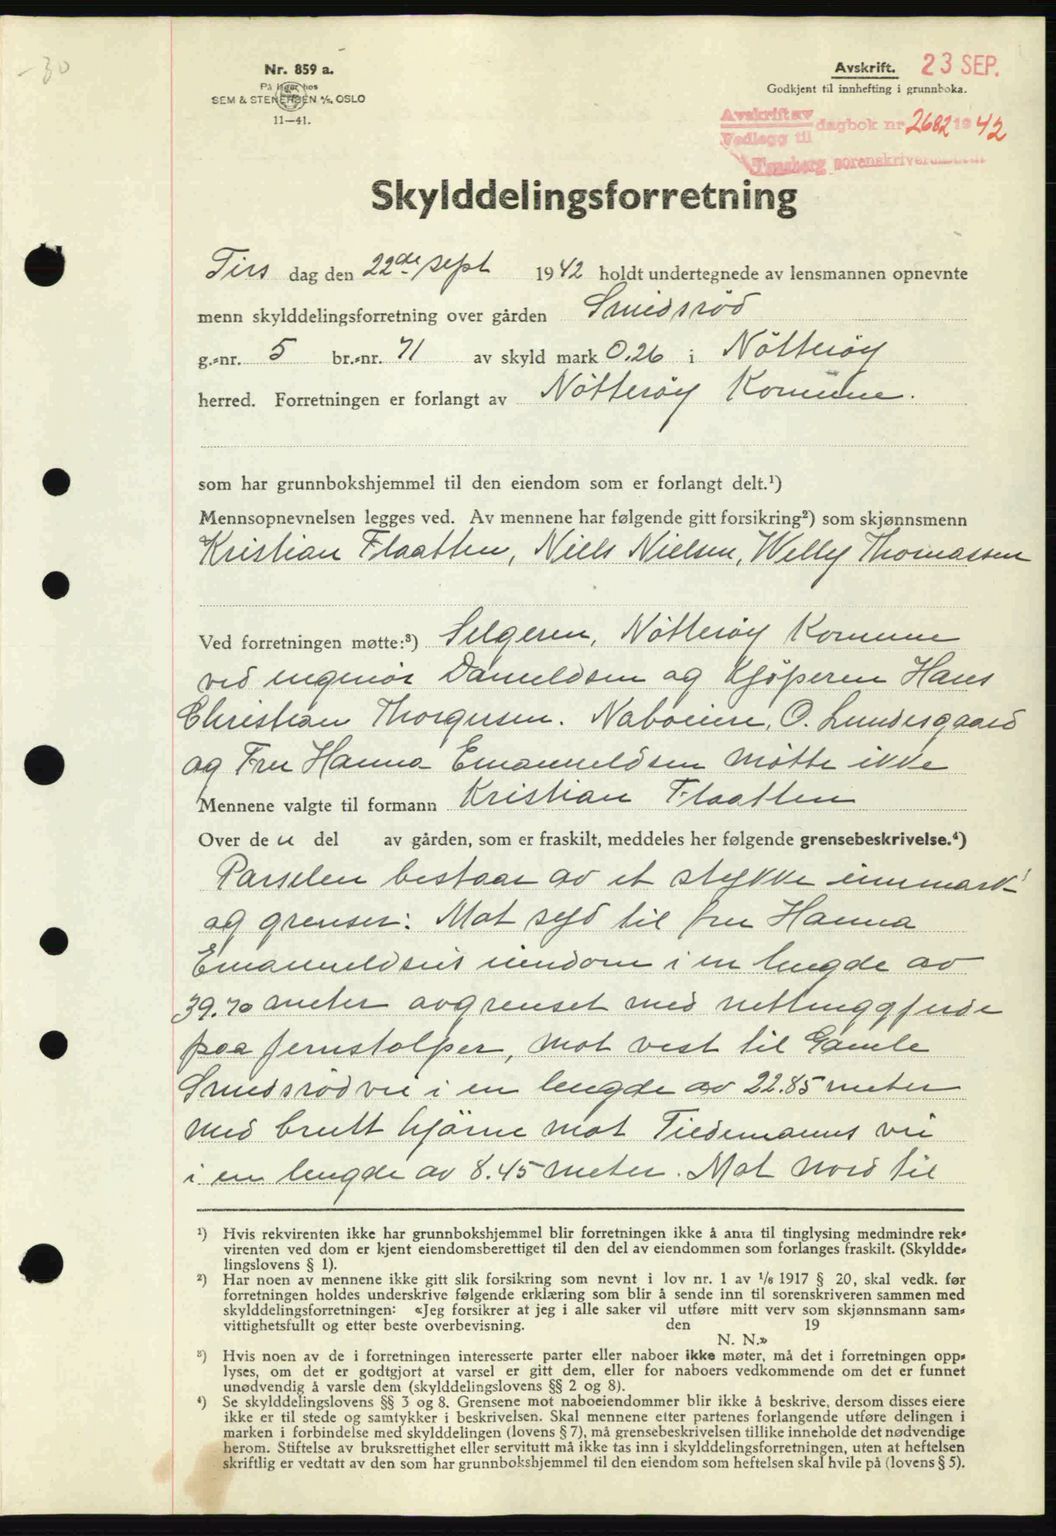 -30
Nr. 859 a.
På lager hos
SEM & STENERSEN A/S, OSLO
11—41.
Avskrift. 23 SEP.
Godkjent til innhefting i grunnboka.
Avskrift av
Vedlegg til dagbok nr 2682 1942
Tønsberg sorenskriverembede
Skylddelingsforretning
Tirs dag den 22de sept 1942 holdt undertegnede av lensmannen opnevnte
menn skylddelingsforretning over gården Smidsröd
g.-nr. 5 br.-nr. 71 av skyld mark 0.26 i Nötteröy
herred. Forretningen er forlangt av Nötteröy Komune.
som har grunnbokshjemmel til den eiendom som er forlangt delt.¹)
Mennsopnevnelsen legges ved. Av mennene har følgende gitt forsikring²) som skjønnsmenn
Kristian Flaatten, Niels Nielsen, Willy Thomassen
Ved forretningen møtte:³) Selgeren, Nötteröy Komune
ved ingeniör Danieldsen og Kjöperen Hans
Christian Thorgersen. Naboeine, O. Lundesgaard
og Fru Hanna Emanueldsen møtte ikke
Mennene valgte til formann Kristian Flaatten
Over de n del av gården, som er fraskilt, meddeles her følgende grensebeskrivelse.⁴)
Parselen bestaar av et stykke innmark
og grenser: Mot syd til fru Hanna
Emanueldsens eiendom i en lengde av
39.70 meter avgrenset med nettinggjerde
paa jernstolper, mot vest til Gamle
Smidsrödvei i en lengde av 22.85 meter
med brutt hjörne mot Tiedemanns vei
i en lengde av 8.45 meter. Mot nord til
¹) Hvis rekvirenten ikke har grunnbokshjemmel blir forretningen ikke å anta til tinglysing medmindre rek-
virenten ved dom er kjent eiendomsberettiget til den del av eiendommen som forlanges fraskilt. (Skyldde-
lingslovens § 1).
²) Har noen av mennene ikke gitt slik forsikring som nevnt i lov nr. 1 av 1/6 1917 § 20, skal vedk. før
forretningen holdes underskrive følgende erklæring som blir å sende inn til sorenskriveren sammen med
skylddelingsforretningen: «Jeg forsikrer at jeg i alle saker vil utføre mitt verv som skjønnsmann sam-
vittighetsfullt og etter beste overbevisning. den 19
N. N.»
³) Hvis noen av de i forretningen interesserte parter eller naboer ikke møter, må det i forretningen opp-
lyses, om det er godtgjort at varsel er gitt dem, eller for naboers vedkommende om det er funnet
unødvendig å varsle dem (skylddelingslovens §§ 2 og 8).
⁴) Se skylddelingslovens §§ 3 og 8. Grensene mot naboeiendommer blir ikke å beskrive, dersom disses eiere
ikke er til stede og samtykker i beskrivelsen. Skal mennene etter partenes forlangende utføre delingen i
marken i forbindelse med skylddelingen (lovens § 7), må grensebeskrivelsen tillike inneholde det nødvendige
herom. Stiftelse av bruksrettighet eller servitutt må ikke tas inn i skylddelingsforretningen, uten at heftelsen
skriftlig er vedtatt av den som har grunnbokshjemmel til den eiendom som heftelsen skal hvile på (lovens § 5).